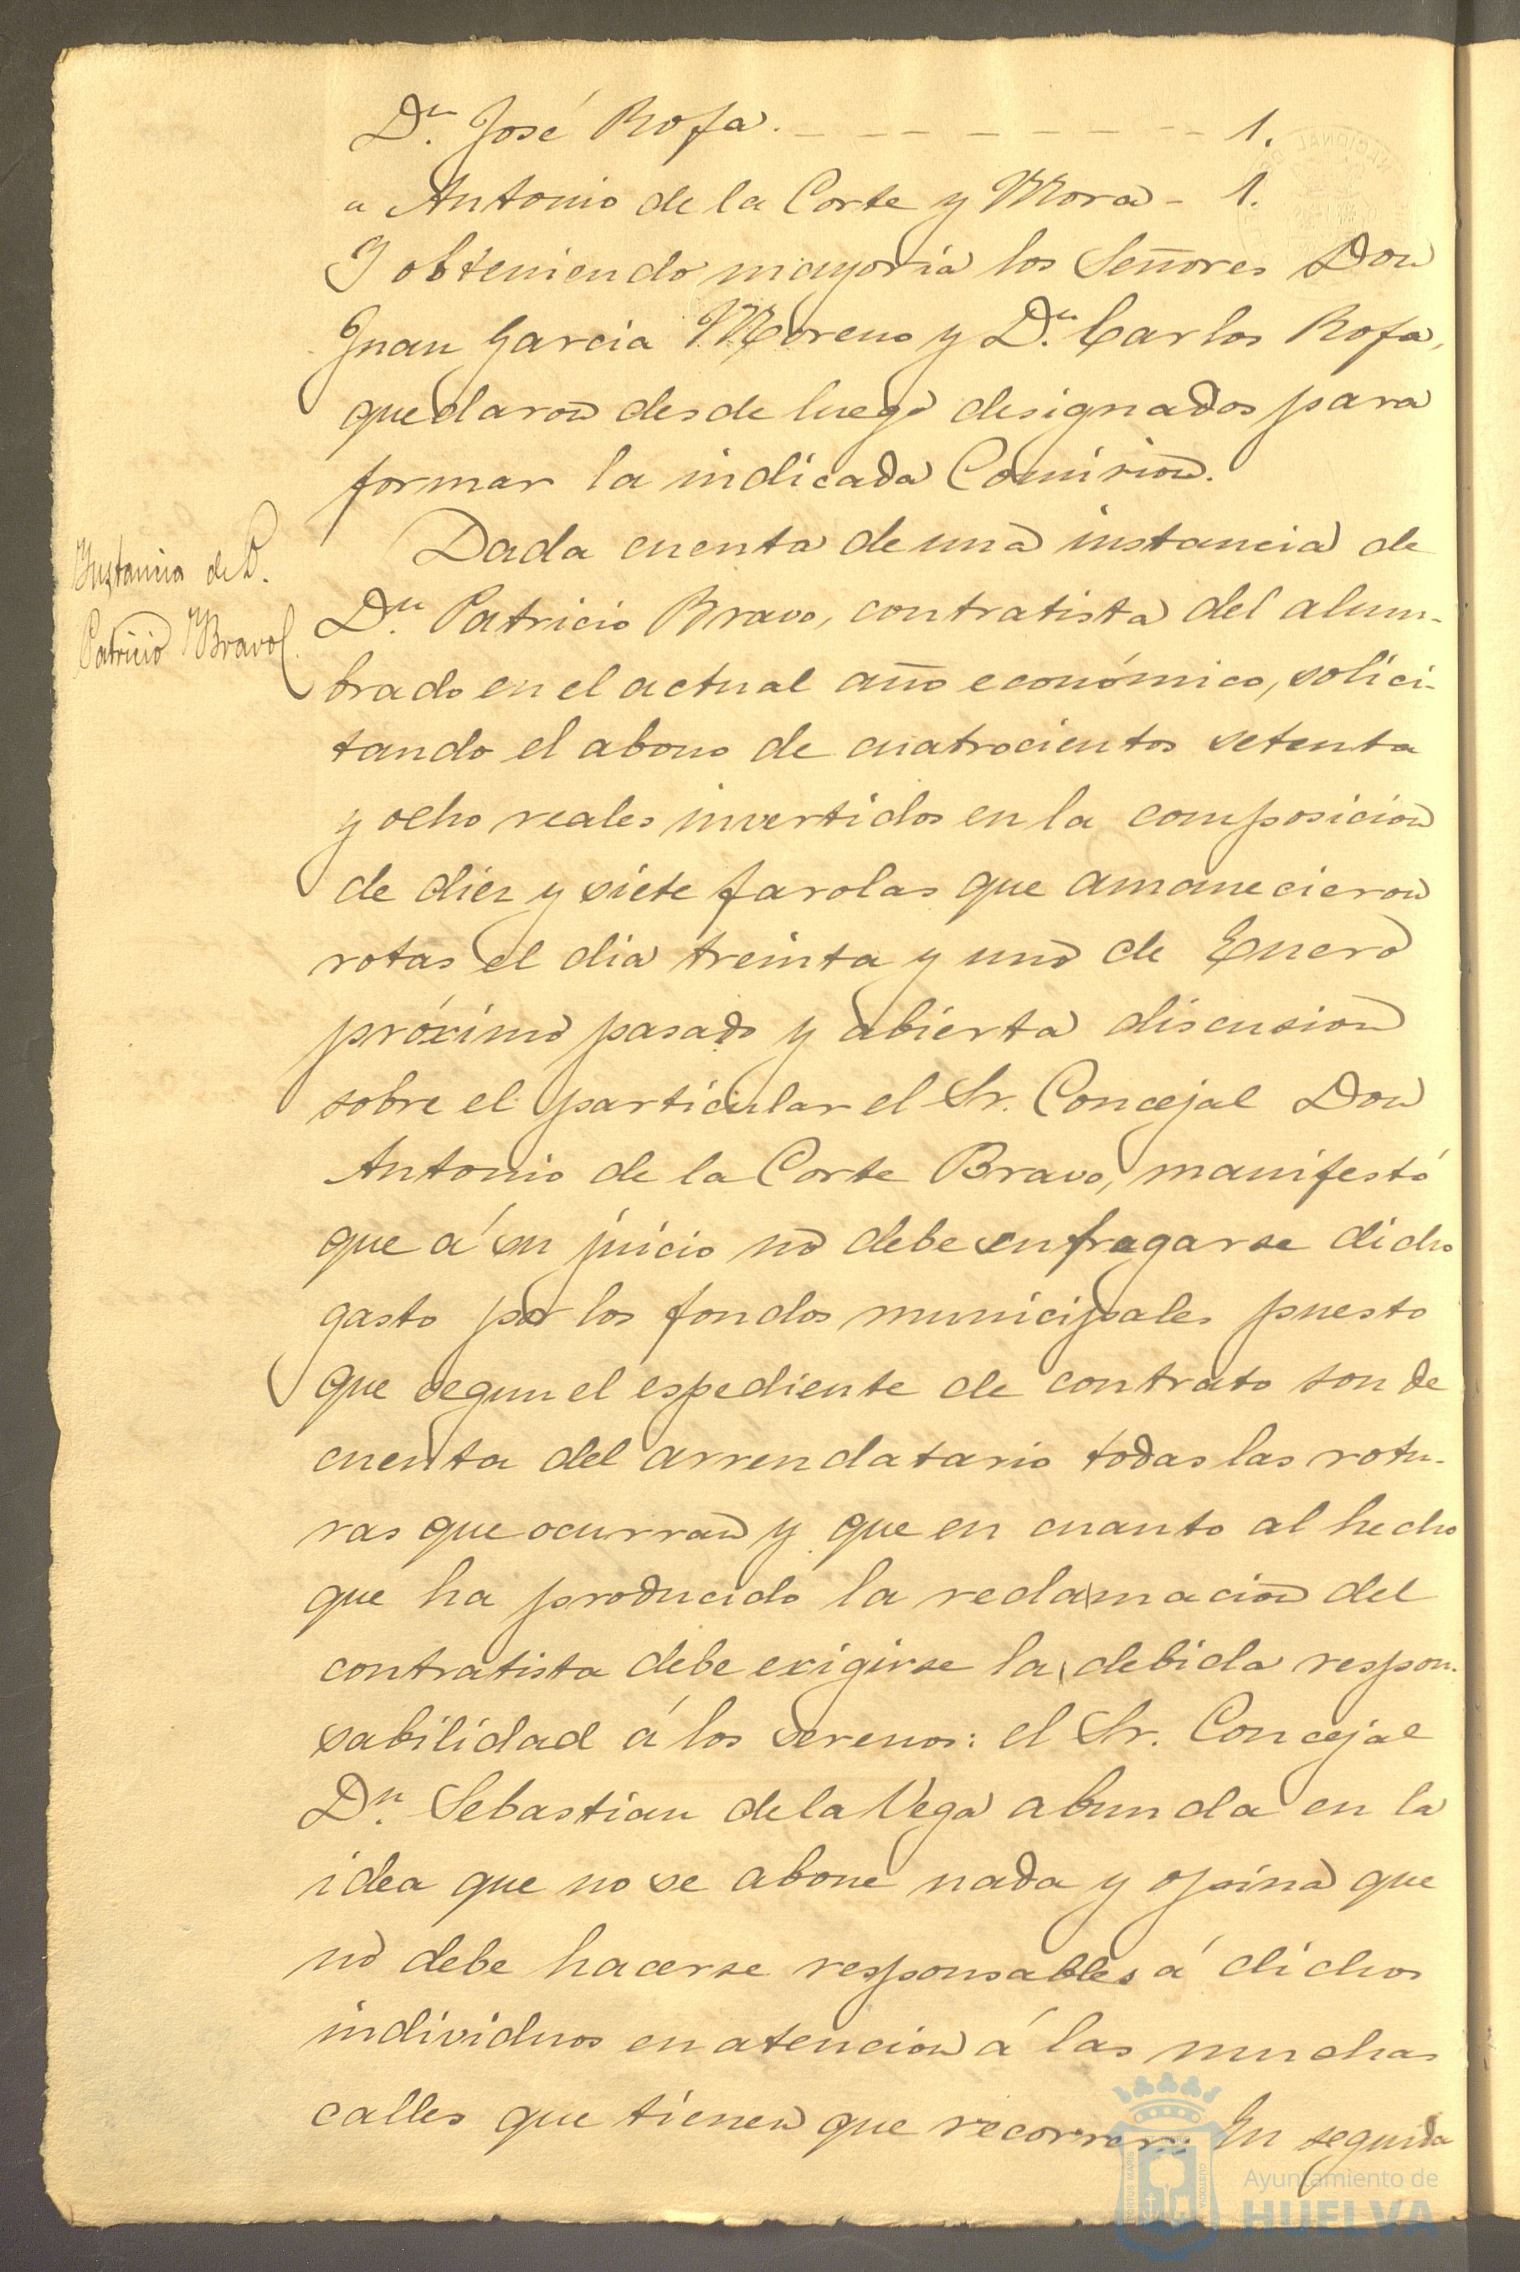 Dn. José Rofa. - - - - - - - - - 1.
" Antonio de la Corte y Mora - 1.
Y obteniendo mayoria los Señores Don
Juan Garcia Moreno y Dn. Carlos Rofa,
quedaron desde luego designados para
formar la indicada Comision.
Instancia de D.
Patricio Bravo
Dada cuenta de una instancia de
Dn. Patricio Bravo, contratista del alum-
brado en el actual año económico, solici-
tando el abono de cuatrocientos setenta
y ocho reales invertidos en la composicion
de diez y siete farolas que amanecieron
rotas el dia treinta y uno de Enero
próximo pasado y abierta discusion
sobre el particular el Sr. Concejal Don
Antonio de la Corte Bravo, manifestó
que á su juicio no debe sufragarse dicho
gasto por los fondos municipales puesto
que segun el espediente de contrato son de
cuenta del arrendatario todas las rotu-
ras que ocurran y que en cuanto al hecho
que ha producido la reclamacion del
contratista debe exigirse la debida respon-
sabilidad á los serenos: el Sr. Concejal
Dn. Sebastian de la Vega abunda en la
idea que no se abone nada y opina que
no debe hacerse responsables á dichos
individuos en atencion á las muchas
calles que tienen que recorrer: En seguida
Ayuntamiento de
HUELVA